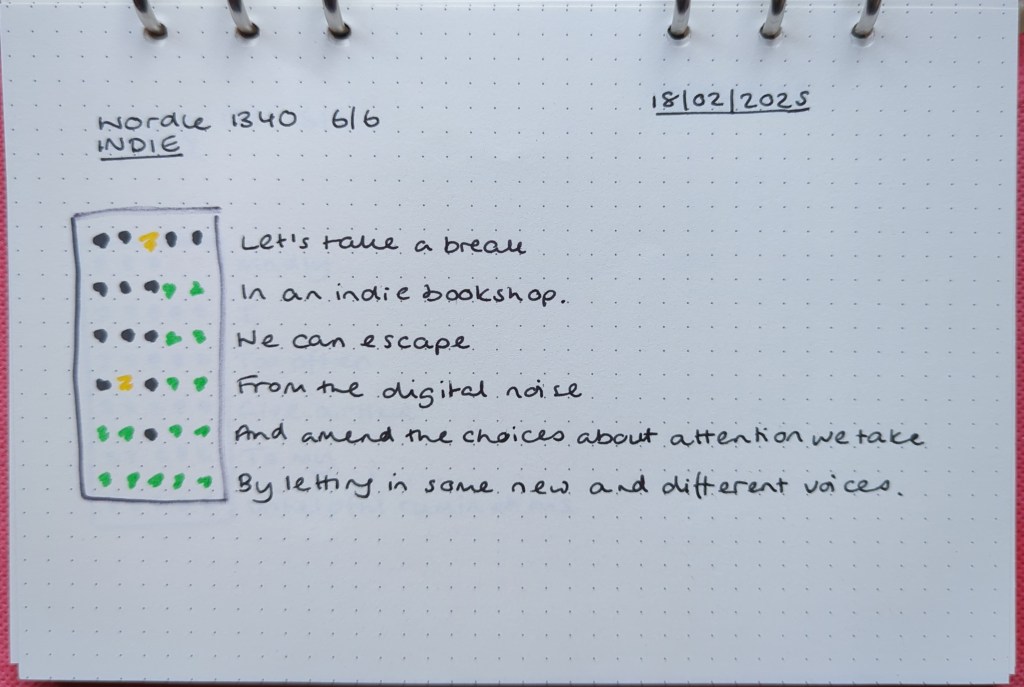 18/02/2025
Wordle 1340 6/6
INDIE
Let's take a break
In an indie bookshop.
We can escape
From the digital noise
And amend the choices about attention we take
By letting in some new and different voices.